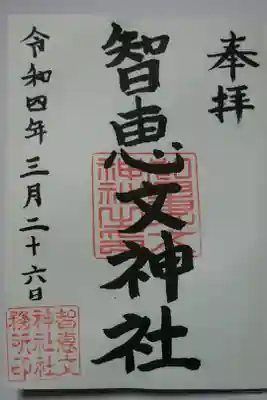 奉拝
智恵文神社
令和四年三月二十六日
智恵文
神社社
務所印